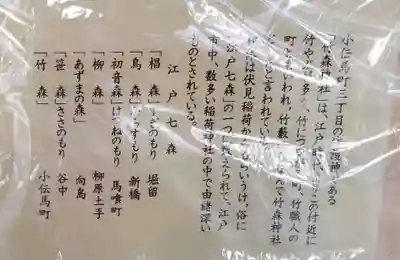 小伝馬町三丁目の　護神　ある
「竹森神社」は、江戸時　　この付近に
竹や　　多　、竹につ　　町、竹職人の
町ともいわれ、竹藪　　　んで竹森神社
　　　れと言われてい
　　は伏見稲荷か　　らいうけ、俗に
江戸七森」の一つに　　えられて、江戸
市中、数多い稲荷神社の中で由緒深い
ものとされている。
江戸七森
「椙森」　ぎのもり　堀留
「烏森」からすもり　新橋
「初音森」はつねのもり　馬喰町
「柳森」　柳原土手
「あずまの森」　向島
「笹森」ささのもり　谷中
「竹森」　小伝馬町